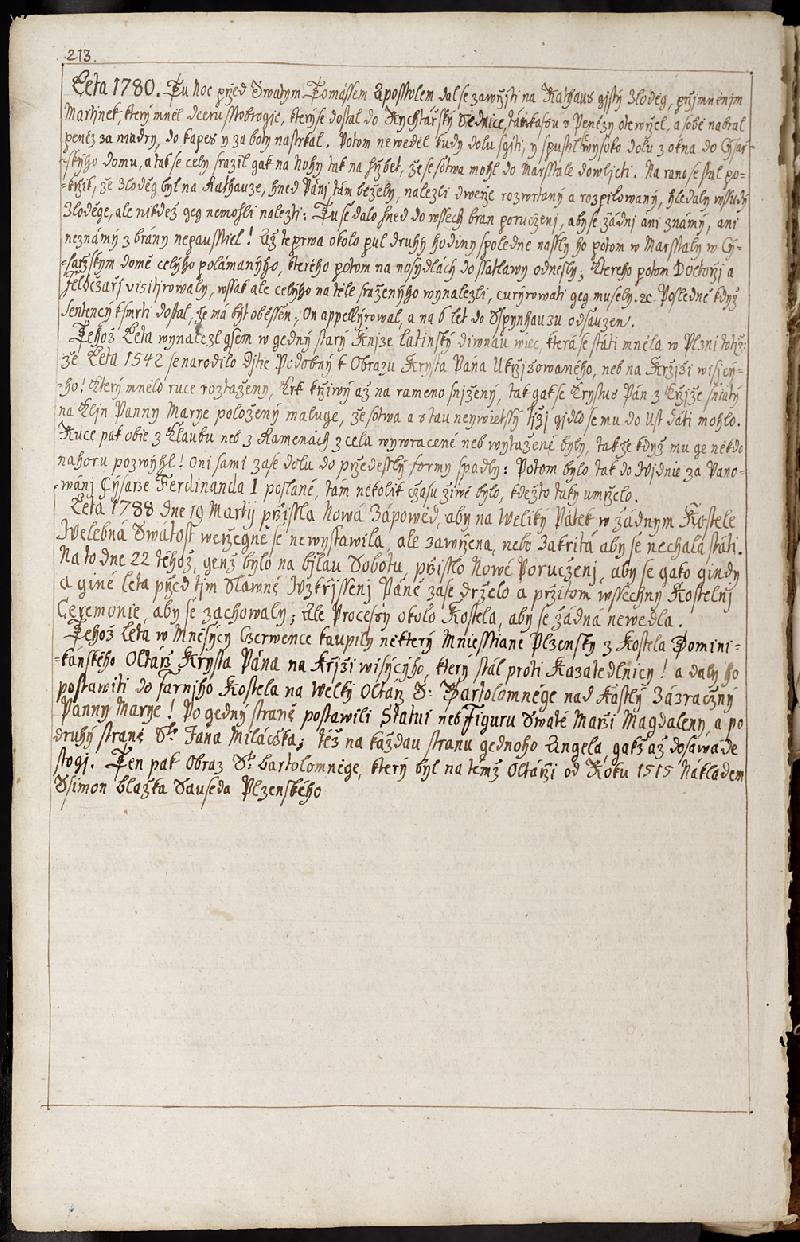 213.
Léta 1780. Tu noc před Swatym Tomássem Aposstolem dal se zawřjti na Rathaus gistý Zloděg, přjmněnjm
Martinek, který měl dceru sswobrogie, který se dostal do Rychtářský Sednice, a Peníze otewřel, a sobě nabral
peněz za nadry, do kapes y za boty nastrkal. Potom newěděl kudy dolu sgíti, y spustil wysoko dolu z okna do Cýsař-
-ského domu, a tak se cely srazyl gak na Nohy tak na hrbet, že se sotwa mohl do Marsstale dowljcti. Na rano se stal po-
-kržik, že Zloděg byl na Rathauze, hned Pánj tam běžely, nalezli dweře rozwrtaný a rozpilowaný, hledaly wssudy
Zloděge, ale nikdež geg nemohli nalezti: Tu se dalo hned do wssech bran poručenj, aby se žádný ani známý, ani
neznámý z brány nepausstiel! Až teprwa okolo pul druhý hodiny spoledne nassly ho potom w Marsstaly w Cý-
-sařském domě celýho polámanýho, kterého potom na nosydlách do ssatlawy odnesly; kterého potom Doctoři a
Feldczaři visitjrowaly, wssak ale celýho na těle sraženýho wynalezli, curýrowati geg musely. &c. Posledně když
Sentency k smrti dostal, že má být oběssen; On appellýrowal, a na 6 let do Sspynhauzu odsauzen.
Téhož Léta wynalezl gsem w gedný starý Knjze Latinský diwnau wiec, která se státi měla w Plzni totiž:
že Léta 1542 se narodilo djtě Podobný k Obrazu Krysta Pána Ukřižowaného, neb na Křjži wisýcý-
-ho! který mnělo ruce roztaženy, Krk křiwý až na rameno snjžený, tak gak se Crystus Pán z Křjže sniatý
na Kljn Panny Marye položený maluge, že sotwa a s tau neywiettssý tjžj gjdlo se mu do Ust dáti mohlo.
Ruce pak obie z Klaubu neb z Ramenách z cela wywracené neb wytažené byly, tak že když mu ge někdo
nahoru pozwýhl! Oni sami zase dolu do předesslý formy spadly: Potom bylo tak do Wjdnie za Pano-
-wánj Cýsaře Ferdinanda I poslané, tám několik čzasu žiwé bylo, kdežto taky umřzelo.
Léta 1788 dne 19 Martij přissla Nowá Zápowěd, aby na Weliky Pátek w žádnym Kostele
Welebná Swátost weřzegně se newystawila, ale zawřena, nebo zakritá aby se nechala státi.
Na to dne 22 téhož, genž bylo na Bjlau Sobotu, přisslo Nowé Poručzenj, aby se gako gindy
a giné léta před tjm Slawné Wzkřjssenj Páně zase drželo a přitom wssechny Kostelnj
Ceremonie, aby se zachowaly; Ale Procesý okolo Kostela, aby se žádná newedla.
Téhož Léta w Mněsýcy Czerwence kaupily některý Mniesstiané Plzenssky z Kostela Domini-
-kánského Oltářz Krysta Pána na křjži wisýcýho, který stál proti Kazatedlnicy! a daly ho
postawiti do farnjho Kostela na Welký Oltárz S: Bartolomněge nad Kasslý Zázračzný
Panny Marye! Po gedný straně postawili Statui neb Figuru Swaté Mařzi Magdaleny, a po
druhý straně St. Jana Miláčzka; též na každau stranu gednoho Angela, gakž až dosáwáde
stogj. Ten pak Obraz St: Bartolomněge, který byl na témž Oltářzi od Roku 1515 Nákladem
Ssimon blažka Sauseda Plzenského